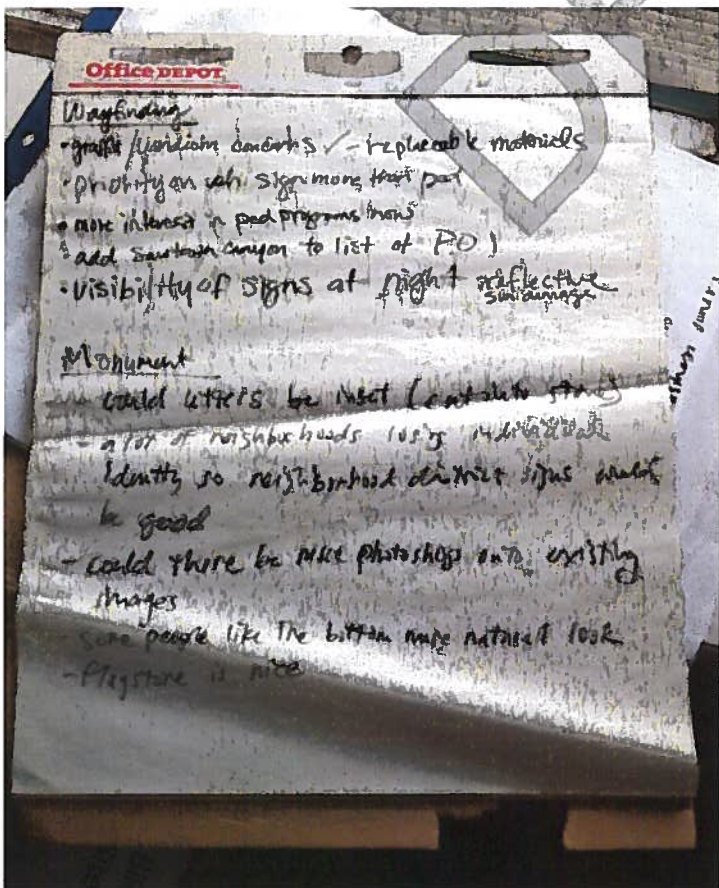 Office DEPOT
Wayfinding
• graffiti / vandalism concerns ✓ - replaceable materials
• priority on veh sign more than ped
• more interest in ped programs
• add canyon to list of POI
• visibility of signs at night reflective
Monument
could letters be inset (cut into stone)
- a lot of neighborhoods losing individual
identity so neighborhood district signs would
be good
- could there be more photoshop onto existing
images
some people like the bottom more natural look
- flagstone is nice
others